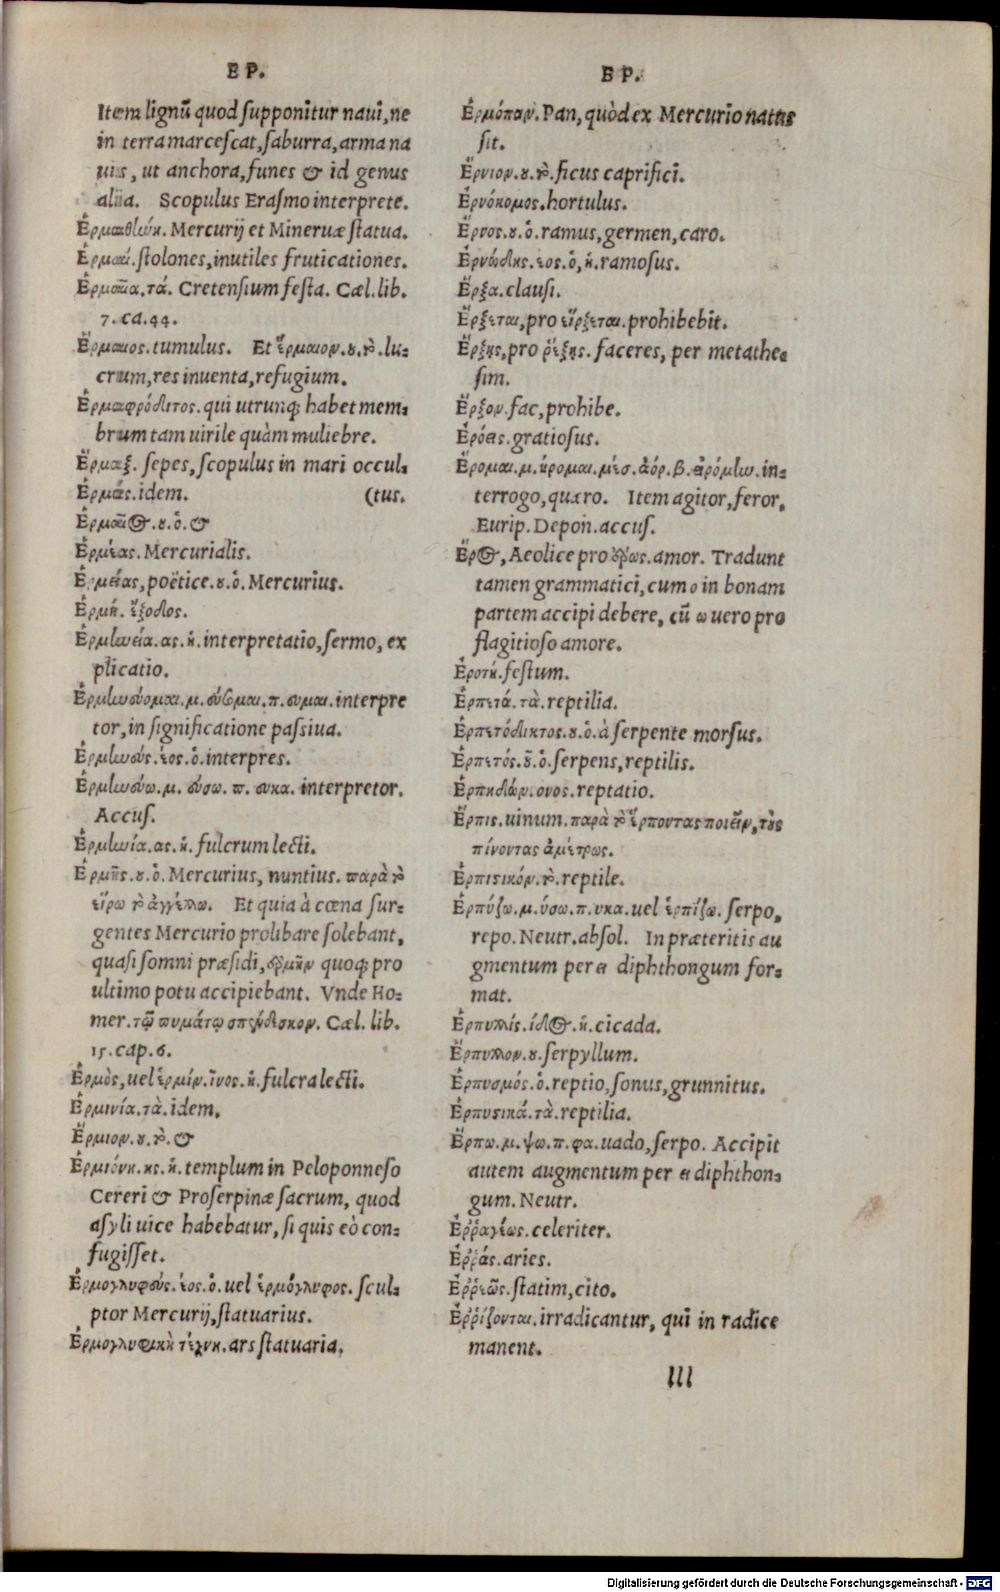 ΕΡ.
Item lignũ quod supponitur naui, ne
in terra marcescat, saburra, arma na
uis, ut anchora, funes & id genus
alia. Scopulus Erasmo interprete.
Ἑρμαθήνη. Mercurij et Mineruæ statua.
Ἑρμαῖ. stolones, inutiles fruticationes.
Ἑρμαῖα, τά. Cretensium festa. Cæl. lib.
7. ca. 44.
Ἕρμαιος. tumulus. Et ἕρμαιον. ου. τὸ. lu=
crum, res inuenta, refugium.
Ἑρμαφρόδιτος. qui utrunq; habet mem=
brum tam uirile quàm muliebre.
Ἕρμαξ. sepes, scopulus in mari occul=
Ἑρμάς. idem. (tus.
Ἑρμαῖος. ου. ὁ. &
Ἑρμέας. Mercurialis.
Ἑρμείας, poëtice. ου. ὁ. Mercurius.
Ἑρμῆ. ἔξοδος.
Ἑρμηνεία. ας. ἡ. interpretatio, sermo, ex
plicatio.
Ἑρμηνεύομαι. μ. εύσομαι. π. ευμαι. interpre
tor, in significatione passiua.
Ἑρμηνεύς. έος. ὁ. interpres.
Ἑρμηνεύω. μ. εύσω. π. ευκα. interpretor.
Accus.
Ἑρμηνία. ας. ἡ. fulcrum lecti.
Ἑρμῆς. ου. ὁ. Mercurius, nuntius. παρὰ τὸ
εἴρω τὸ ἀγγέλλω. Et quia à cœna sur=
gentes Mercurio prolibare solebant,
quasi somni præsidi, ἑρμῆν quoq; pro
ultimo potu accipiebant. Vnde Ho=
mer. τῷ πυμάτῳ σπένδεσκον. Cæl. lib.
15. cap. 6.
Ἑρμὸς, uel ἑρμίν. ῖνος. ἡ. fulcra lecti.
Ἑρμινία. τὰ. idem.
Ἕρμιον. ου. τὸ. &
Ἑρμιόνη. ης. ἡ. templum in Peloponneso
Cereri & Proserpinæ sacrum, quod
asyli uice habebatur, si quis eò con=
fugisset.
Ἑρμογλυφεύς. έος. ὁ. uel ἑρμόγλυφος. scul=
ptor Mercurij, statuarius.
Ἑρμογλυφικὴ τέχνη. ars statuaria.
ΕΡ.
Ἑρμόπαν. Pan, quòd ex Mercurio natus
sit.
Ἔρνιον. ου. τὸ. ficus caprifici.
Ἐρνόκομος. hortulus.
Ἔρνος. ου. ὁ. ramus, germen, caro.
Ἐρνώδης. εος. ὁ, ἡ. ramosus.
Ἔρξα. clausi.
Ἔρξεται, pro εἴρξεται. prohibebit.
Ἔρξης, pro ῥέξης. faceres, per metathe=
sim.
Ἔρξον. fac, prohibe.
Ἐρόεις. gratiosus.
Ἔρομαι. μ. ήρομαι. μέσ. ἀόρ. β. εἰρόμην. in=
terrogo, quæro. Item agitor, feror,
Eurip. Depon. accus.
Ἔρος, Aeolice pro ἔρως. amor. Tradunt
tamen grammatici, cum ο in bonam
partem accipi debere, cũ ω uero pro
flagitioso amore.
Ἐροτή. festum.
Ἑρπετά. τὰ. reptilia.
Ἑρπετόδηκτος. ου. ὁ. à serpente morsus.
Ἑρπετός. οῦ. ὁ. serpens, reptilis.
Ἑρπηδών. όνος. reptatio.
Ἕρπις. uinum. παρὰ τὸ ἕρποντας ποιεῖν, τοὺς
πίνοντας ἀμέτρως.
Ἑρπιστικόν. τὸ. reptile.
Ἑρπύζω. μ. ύσω. π. υκα. uel ἑρπίζω. serpo,
repo. Neutr. absol. In præteritis au
gmentum per ει diphthongum for=
mat.
Ἑρπυλλίς. ίδος. ἡ. cicada.
Ἕρπυλλον. ου. serpyllum.
Ἑρπυσμός. ὁ. reptio, sonus, grunnitus.
Ἑρπυστικά. τὰ. reptilia.
Ἕρπω. μ. ψω. π. φα. uado, serpo. Accipit
autem augmentum per ει diphthon=
gum. Neutr.
Ἐῤῥαγέως. celeriter.
Ἐῤῥάς. aries.
Ἐῤῥεῶς. statim, cito.
Ἐῤῥίζονται. irradicantur, qui in radice
manent.
lll
Digitalisierung gefördert durch die Deutsche Forschungsgemeinschaft - DFG